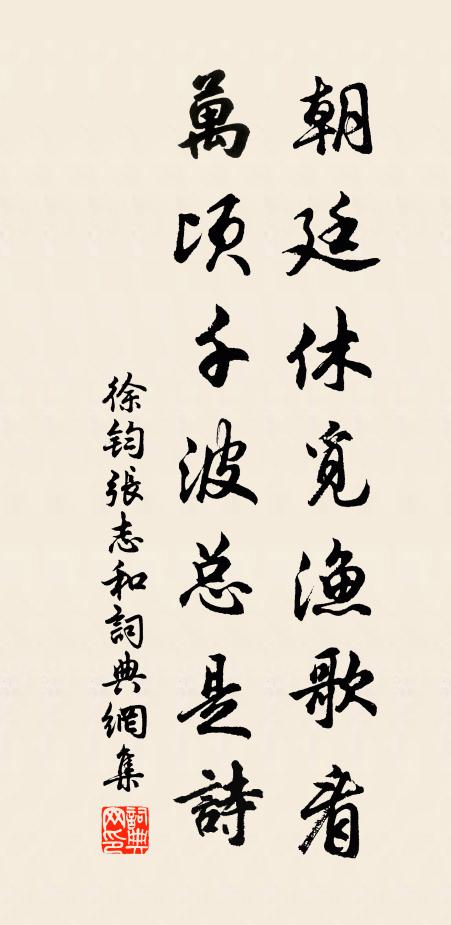 朝廷休覓漁歌看
萬頃千波总是詩
徐鈞張志和詞典網集
詞典网印